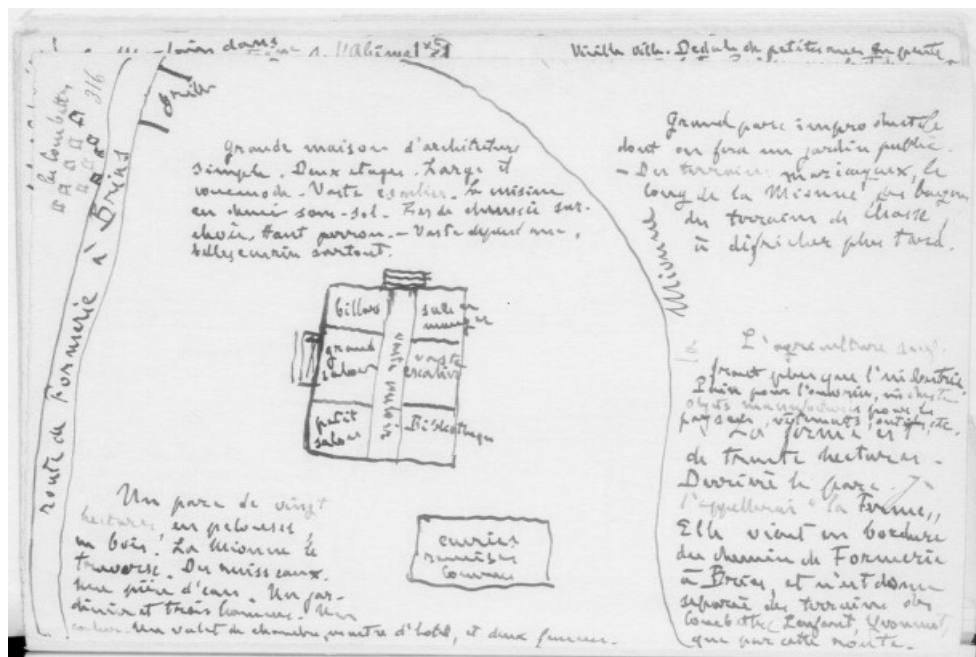 dans
Vieille ville. Dédale de petites rues en pente
316
les Combettes
Grille
route de Formerie à Brias
Grande maison d'architecture
simple. Deux étages. Large et
commode. Vaste escalier. La cuisine
en demi sous-sol. Rez de chaussée sur-
élevé. Haut perron. - Vaste
surtout.
billard
salle à
manger
grand
salon
vaste vestibule
vaste
escalier
petit
salon
Bibliothèque
Un parc de vingt
hectares, en pelouses,
en bois. La Mionne le
traverse. Des ruisseaux.
une pièce d'eau. Un jar-
dinier et trois hommes. Un
cocher. Un valet de chambre, maitre d'hôtel, et deux femmes.
écuries
remises
communs
Mionne
Grand parc improductif
dont on fera un jardin public.
- Des terrains marécageux, le
long de la Mionne,
des terrains de chasse,
à défricher plus tard.
L'agriculture
plus que l'industrie
Pain pour l'ouvrier, industrie
objets manufacturés pour le
paysan, vêtements, outils, etc.
La ferme est
de trente hectares -
Derrière le parc. Je
l'appellerai "la Ferme"
Elle vient en bordure
du chemin de Formerie
à Brias, et n'est donc
séparée des terrains des
Combettes, Lenfant, Yvonnot,
que par cette route.